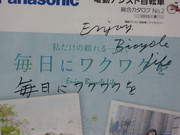 Panasonic
電動アシスト自転車
総合カタログ No.2
Enjoy
私だけの頼れる
Bicycle
毎日にワクワクを
Life
毎日にワクワクを